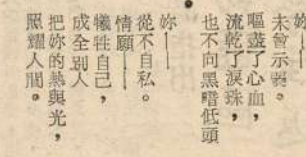 妳——
未曾示弱。
嘔盡了心血，
流乾了淚珠，
也不向黑暗低頭
妳——
從不自私。
情願——
犧牲自己，
成全別人
把妳的熱與光，
照耀人間。